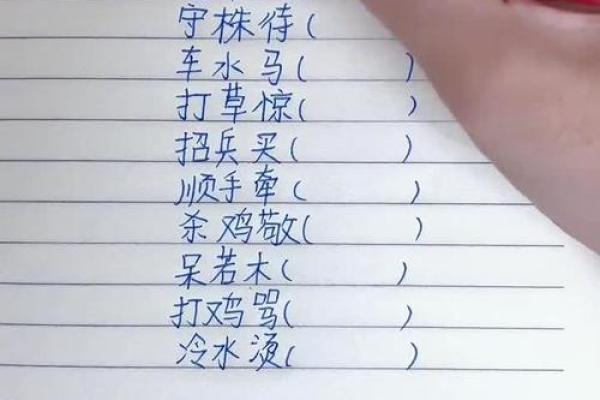 守株待(
车水马( )
打草惊( )
招兵买( )
顺手牵( )
杀鸡敬( )
呆若木( )
打鸡骂( )
冷水烫( )